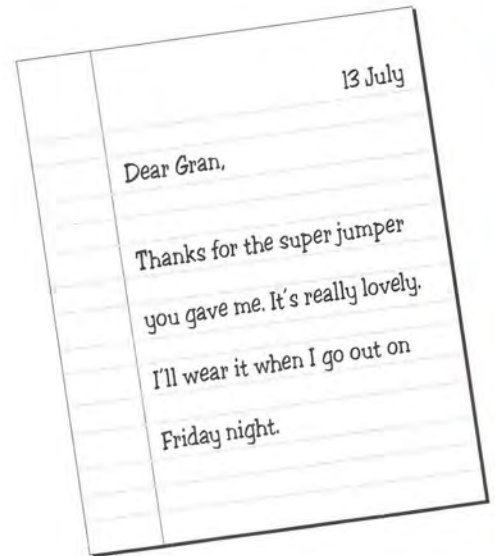 13 July
Dear Gran,
Thanks for the super jumper
you gave me. It's really lovely.
I'll wear it when I go out on
Friday night.